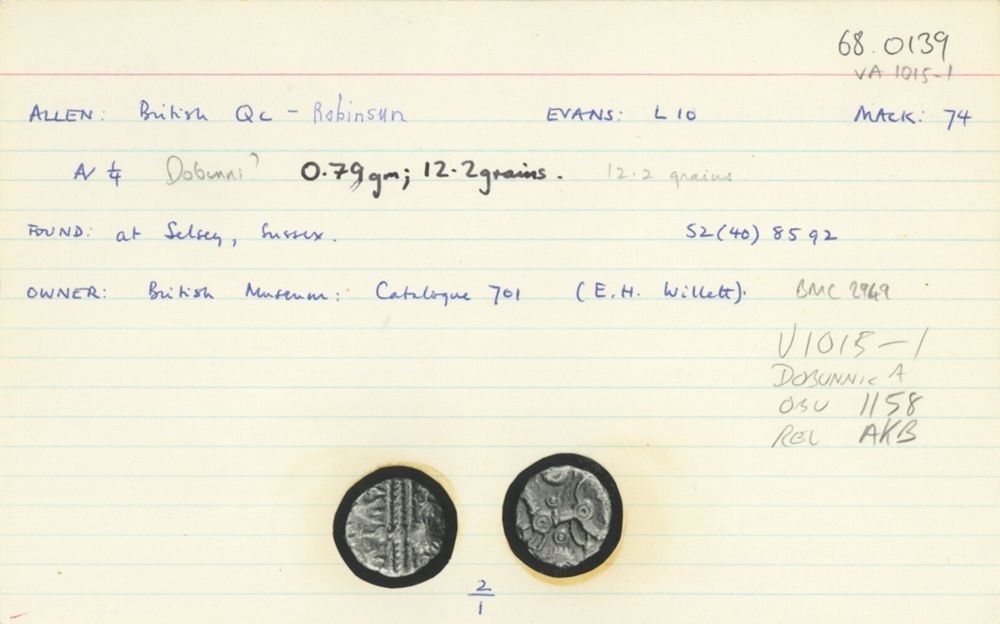 68.0139
VA 1015-1
ALLEN: British Qc - Robinson EVANS: L10 MACK: 74
N 1/4 Dobunni? 0.79gm; 12.2grains. 12.2 grains
FOUND: at Selsey, Sussex. SZ(40) 8592
OWNER: British Museum: Catalogue 701 (E.H. Willett). BMC 2949
V1015-1
DOBUNNIC A
OBV 1158
REV AKB
2
1